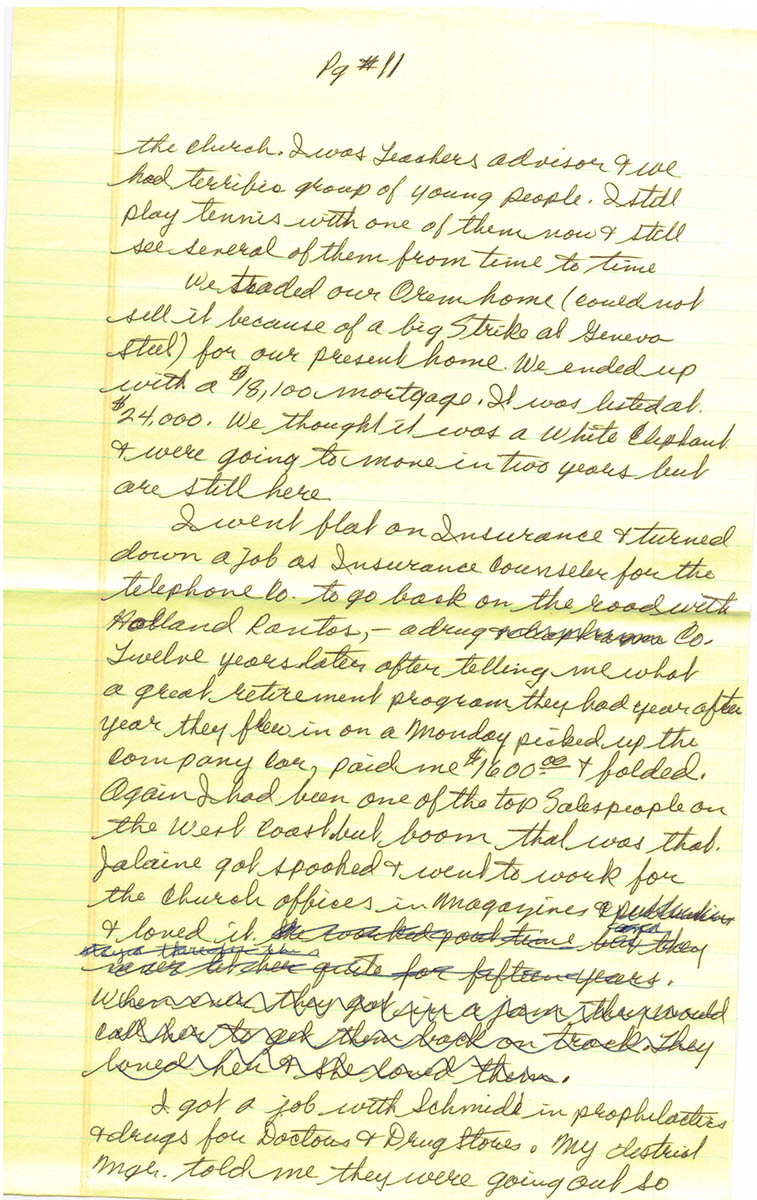 Pg #11
the church. I was Teachers advisor & we
had terrific group of young people. I still
play tennis with one of them now & still
see several of them from time to time
We traded our Orem home (could not
sell it because of a big Strike at Geneva
Steel) for our present home. We ended up
with a $18,100 mortgage. It was listed at
$24,000. We thought it was a White Elephant
& were going to move in two years but
are still here
I went flat on Insurance & turned
down a job as Insurance Counseler for the
telephone Co. to go back on the road with
Holland Rantos, - a drug Co.
Twelve years later after telling me what
a great retirement program they had year after
year they flew in on a Monday picked up the
Company Car, paid me $1600.00 & folded.
Again I had been one of the top Salespeople on
the West Coast but boom that was that.
Jalaine got spooked & went to work for
the Church offices in Magazines &
& loved it. She worked part time they
never let her quit for fifteen years.
When ever they got in a jam they would
call her to get them back on track. They
loved her & she loved them.
I got a job with Schmidt in prophilactics
& drugs for Doctors & Drug Stores. My destrict
Mgr. told me they were going out so